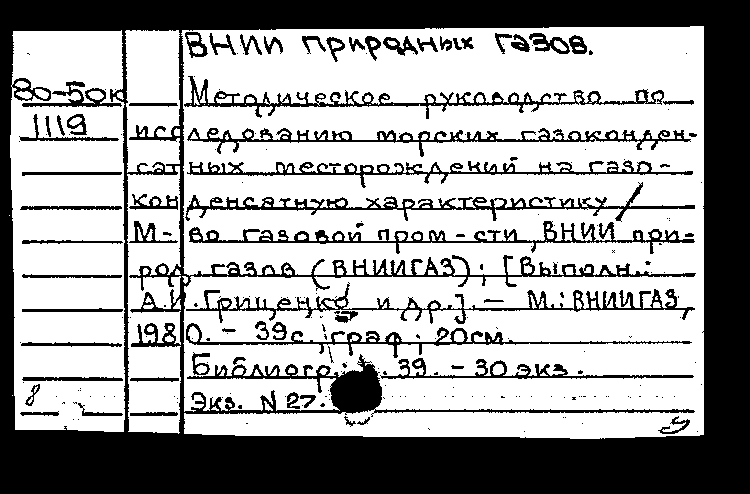 ВНИИ природных газов.
80-50к Методическое руководство по
1119 исследованию морских газоконден-
сатных месторождений на газо-
конденсатную характеристику /
М-во газовой пром-сти, ВНИИ при-
род. газов (ВНИИГАЗ); [Выполн.:
А.И. Гриценко и др.]. - М.: ВНИИГАЗ,
1980. - 39с., граф.; 20см.
Библиогр.: с. 39. - 30 экз.
8 Экз. N 27.